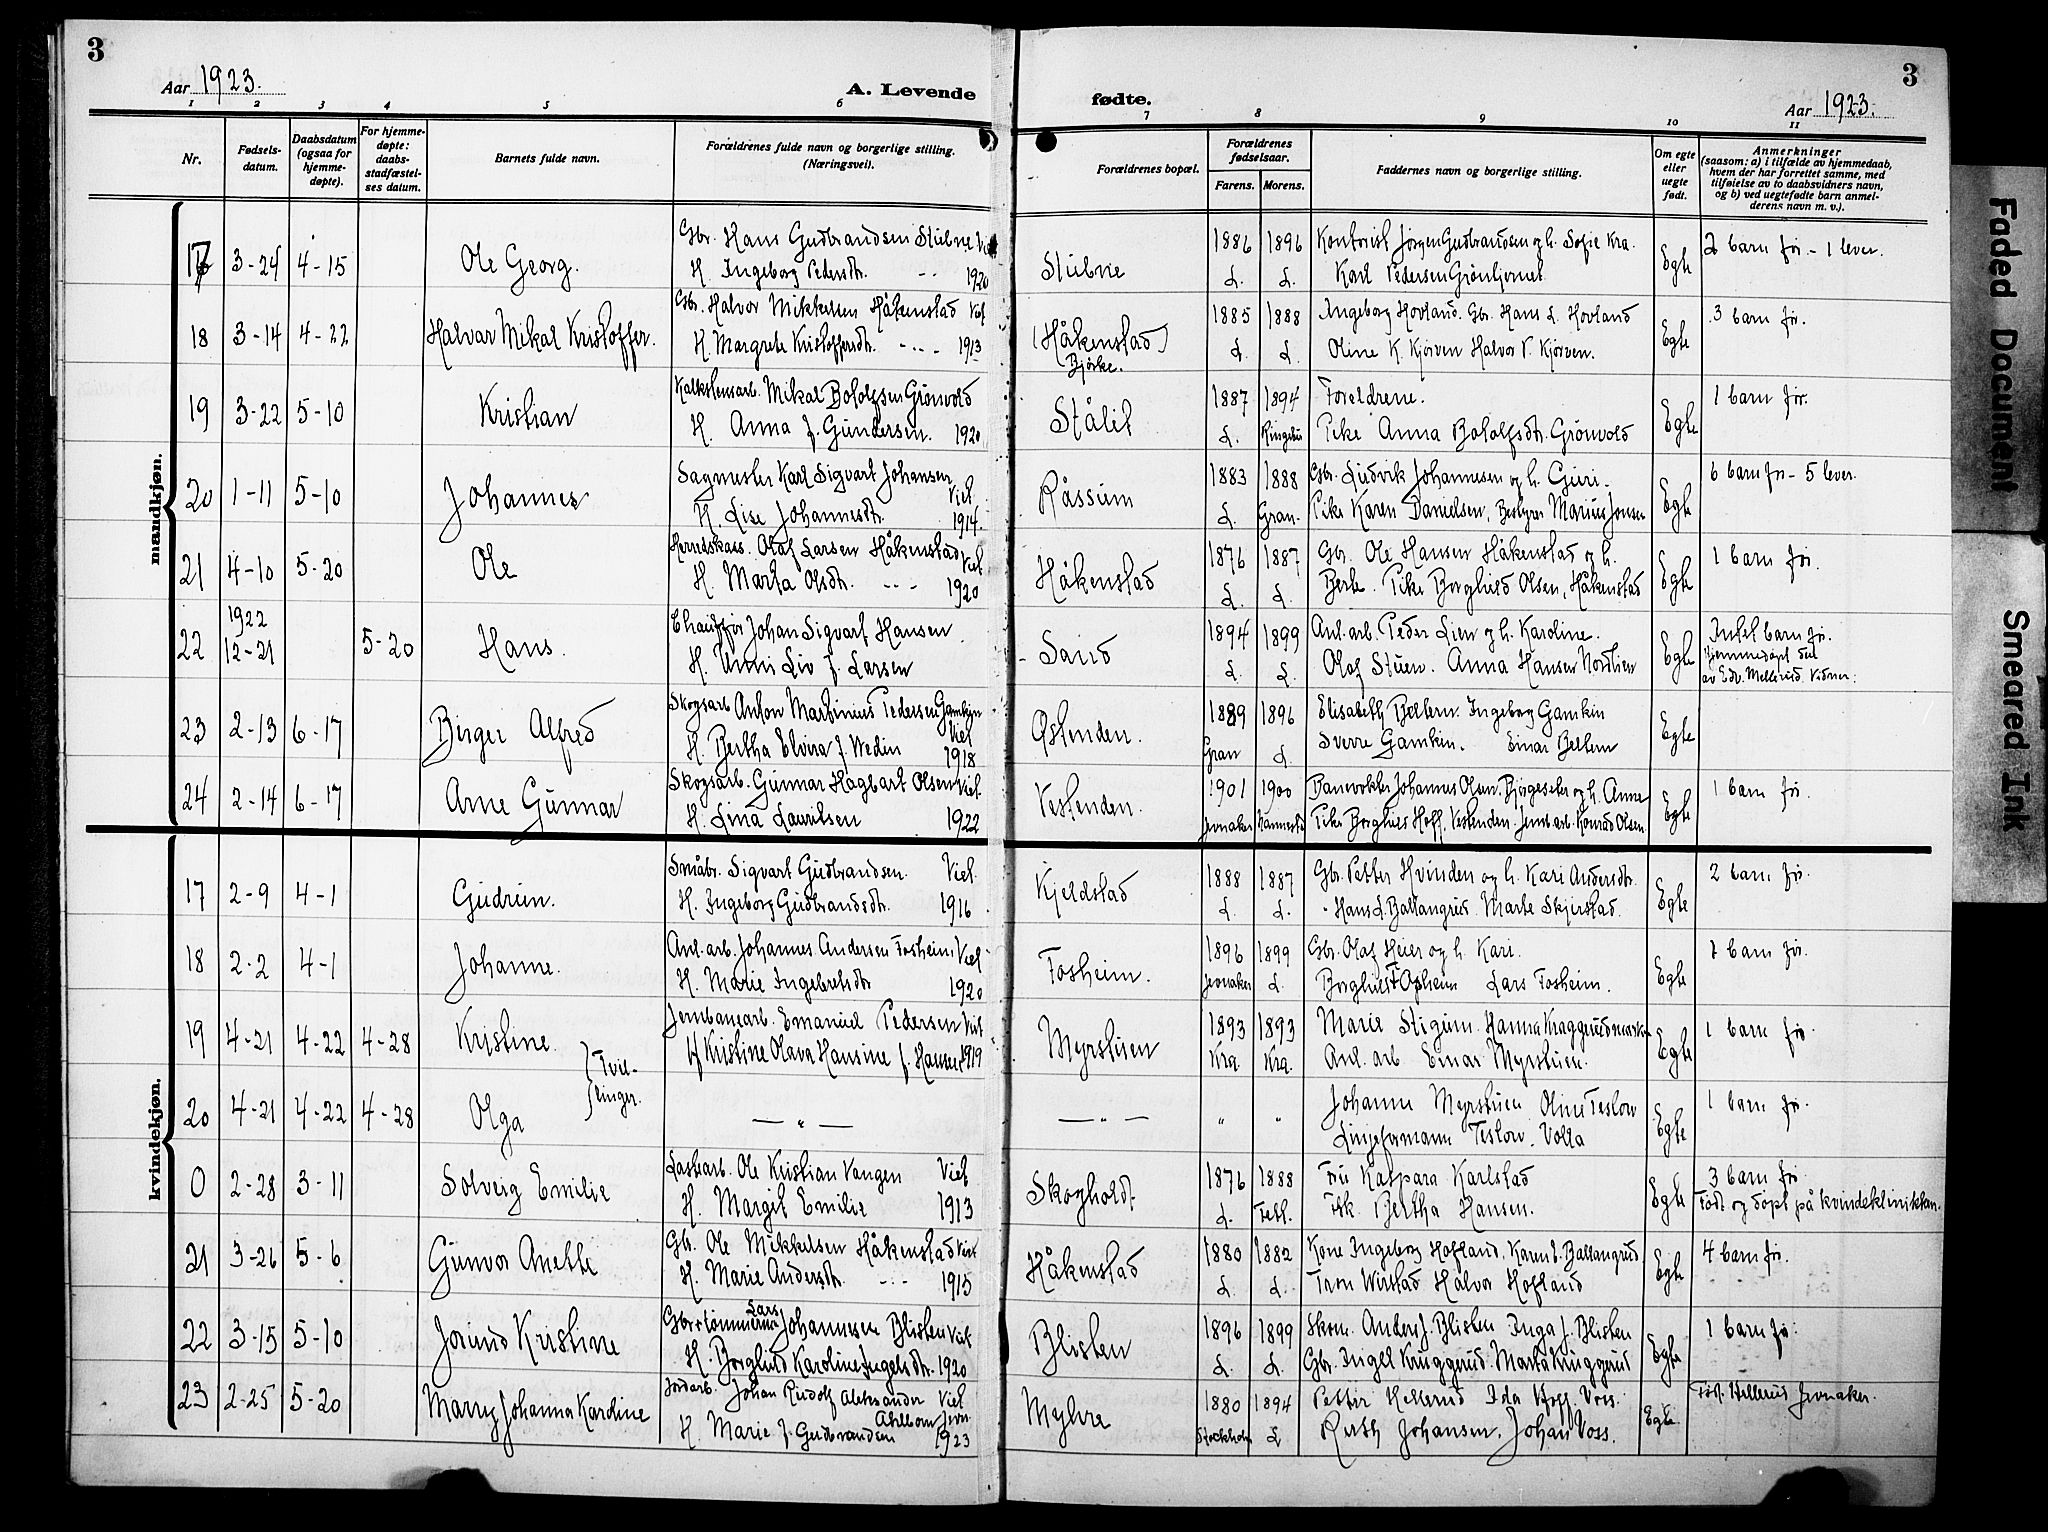 3
Aar 1923.
A. Levende
fødte.
Aar 1923.
3
1 2 3 4 5 6 7 8 9 10 11
Nr.
Fødsels-
datum.
Daabsdatum
(ogsaa for
hjemme-
døpte).
For hjemme-
døpte:
daabs-
stadfæstel-
ses datum.
Barnets fulde navn.
Forældrenes fulde navn og borgerlige stilling.
(Næringsvei).
Forældrenes bopæl.
Forældrenes
fødselsaar.
Farens. Morens.
Faddernes navn og borgerlige stilling.
Om egte
eller
uegte
født.
Anmerkninger
(saasom: a) i tilfælde av hjemmedaab,
hvem der har forrettet samme, med
tilføielse av to daabsvidners navn,
og b) ved uegtefødte barn anmel-
derens navn m. v.).
mandkjøn.
17 3-24 4-15 Ole Georg. Gbr. Hans Gudbrandsen Stubne
H. Ingeborg Pedersdtr. -"- 1920
Stubne 1886 1896 Kontorist Jørgen Gudbrandsen og h. Sofie Kra.
L. L. Karl Pedersen Grøntjernet Egte 2 barn før - 1 lever.
18 3-14 4-22 Halvar Mikal Kristoffer. Gbr. Halvor Mikkelsen Håkenstad Viet
H. Margrete Kristoffersdtr. -"- 1913
(Håkenstad)
Bjørke. 1885 1888 Ingeborg Hovland. Gbr. Hans L. Hovland
L. L. Oline K. Kjørven Halvor V. Kjørven. Egte 3 barn før.
19 3-22 5-10 Kristian Kalkstensarb. Mikal Botolfsen Grönvold
H. Anna f. Gundersen. 1920
Stålit 1887 1894 Foreldrene.
L. Ringebu Pike Anna Botolfsdtr. Grönvold Egte 1 barn før.
20 1-11 5-10 Johannes Sagmester Karl Sigvart Johansen Viet
H. Lise Johannesdtr. 1914.
Råssum 1883 1888 Gbr. Ludvik Johannesen og h. Guri.
L. Gran. Pike Karen Danielsen, Bestyrer Marius Jonsen Egte 6 barn før - 5 lever.
21 4-10 5-20 Ole Herredskass. Olaf Larsen Håkenstad Viet
H. Marta Olsdtr. -"- 1920
Håkenstad 1876 1887 Gbr. Ole Hansen Håkenstad og h.
L. L. Berte. Pike Borghild Olsen, Håkenstad Egte 1 barn før.
22 1922
12-21 5-20 Hans. Chauffør Johan Sigvart Hansen
H. Anni Liv f. Larsen
Sand 1894 1899 Anl. arb. Peder Lien og h. Karoline.
L. L. Olaf Stuen. Anna Hansen Nordlien Egte Intet barn før.
Hjemmedøpt
av Edv. Mellerud. Vidner:
23 2-13 6-17 Birger Alfred Skogsarb. Anton Martinius Pedersen Gamkin Viet
H. Bertha Elvira f. Wedin 1918
Østenden. 1889 1896 Elisabeth Bellern. Ingeborg Gamkin
Gran L. Sverre Gamkin. Einar Bellern Egte
24 2-14 6-17 Arne Gunnar Skogsarb. Gunnar Hagbart Olsen Viet.
H. Lina Lauritsen 1922
Vestenden. 1901 1900 Banevokter Johannes Olsen Bjørgeseter og h. Anne
Jevnaker Nannestad Pike Borghild Hoff, Vestenden. Jernb. arb. Konrad Olsen Egte 1 barn før.
kvindekjøn.
17 2-9 4-1 Gudrun. Småbr. Sigvart Gudbrandsen. Viet.
H. Ingeborg Gudbrandsdtr. 1916
Kjeldstad 1888 1887 Gbr. Petter Hvinden og h. Kari Andersdtr.
L. L. Hans L. Ballangrud. Marte Skjerstad. Egte 2 barn før.
18 2-2 4-1 Johanne. Anl. arb. Johannes Andersen Fosheim Viet
H. Marie Ingebretsdtr 1920
Fosheim. 1896 1899 Gbr. Olaf Heier og h. Kari.
Jevnaker L. Borghild Opheim Lars Fosheim. Egte 1 barn før.
19 4-21 4-22 4-28 Kristine. Jernbanearb. Emanuel Pedersen Viet
H Kristine Olava Hansine f. Hansen 1919
Tvil-
linger.
Myrstuen 1893 1893 Marie Stigum. Hanna Kraggerud
Kra. Kra. Anl. arb Einar Myrstuen. Egte 1 barn før
20 4-21 4-22 4-28 Olga — " — — " — " "
Johanne Myrstuen Oline Teslow
Linjeformann Teslow. Volla Egte 1 barn før.
0 2-28 3-11 Solveig Emilie Lastearb. Ole Kristian Vangen Viet
H. Margit Emilie 1913
Skogholdt. 1876 1888 Fru Kaspara Karlstad
L. Fetl. Frk. Bertha Hansen. Egte 3 barn før.
Født og døpt på kvindeklinikken.
21 3-26 5-6 Gunvor Anette Gbr. Ole Mikkelsen Håkenstad Viet
H. Marie Andersdtr. -"- 1915
Håkenstad 1880 1882 Kone Ingeborg Hofland. Karen L. Ballangrud
L. L. Torn Wirstad Halvor Hofland Egte 4 barn før.
22 3-15 5-10 Jorund Kristine Gbr. tømmerm. Lars Johannesen Blisten Viet
H. Borghild Karoline Ingelsdtr. 1920
Blisten 1896 1899 Skom. Anders J. Blisten Inga J. Blisten
L. L. Gbr. Ingell Kruggerud. Marta Kruggerud Egte 1 barn før.
23 2-25 5-20 Marry Johanna Karoline Jordarb. Johan Rudolf Aleksander Viet
Ahlbom Jevn.
H. Marie f. Gudbrandsen 1923
Myhre 1880 1894 Petter Hellerud Ida Hoff. Voss.
Stockholm L Ruth Johansen. Johan Voss. Egte. Fød. Hellerud Jevnaker.
Faded Document
Smeared Ink